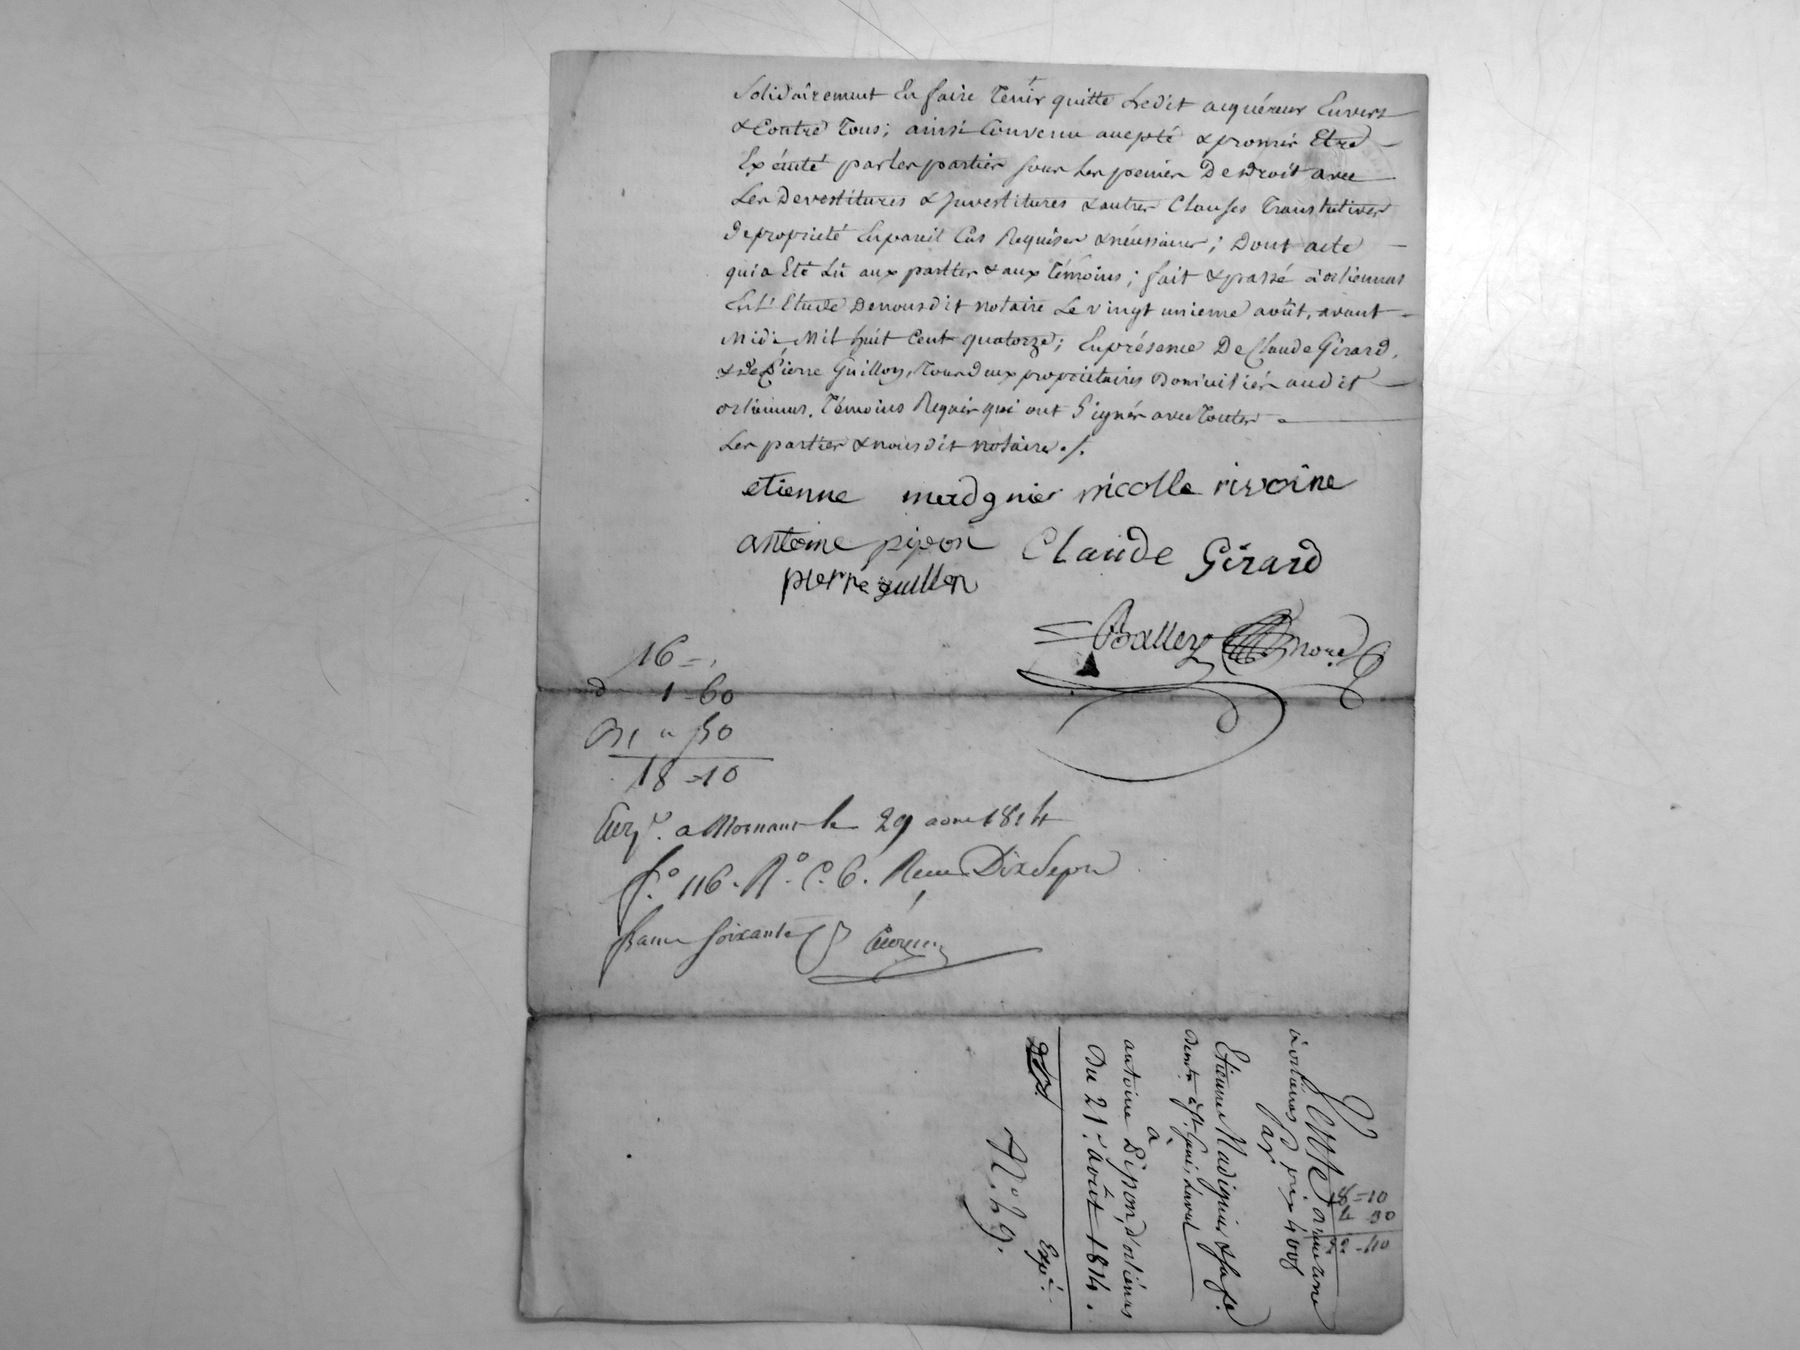 Solidairement En faire Tenir quitte Ledit acquéreur Envers
& Contre Tous; ainsi Convenu accepté & promis Etre
Exécuté par les parties sous les peines De Droit avec
Les Devestitures & Investitures & autres Clauses Translatives
De propriété En pareil Cas Requises & nécessaires; Dont acte
qui a Eté Lû aux parties & aux Témoins; fait & passé à orliennas
En L'Etude De nous dit notaire Le vingt unieme août, avant
Midi, Mil huit Cent quatorze; En présence De Claude Girard,
& De Pierre Guillon, Tous deux propriétaires Domiciliés audit
orliennas, Témoins Requis qui ont Signés avec Toutes
Les parties & nous dit notaire ./.
etienne madgnier nicolle rivoire
antoine pipon Claude Girard
pierre guillon
Balley nore
16 =
d 1 = 60
" 50
18 = 10
Enrg.é a Mornant le 29 aout 1814
f.o 116. R.o C. 6. Recu Dix Sept
francs Soixante
Vente
à orlienas prix 400f
par
Etienne Madignier & sa fe.
Demts. à St. Genis Laval
à
antoine Pipon, d'orliénas
Du 21.e août 1814.
Expé.
N.o 59.
18 = 10
4 30
22 = 40